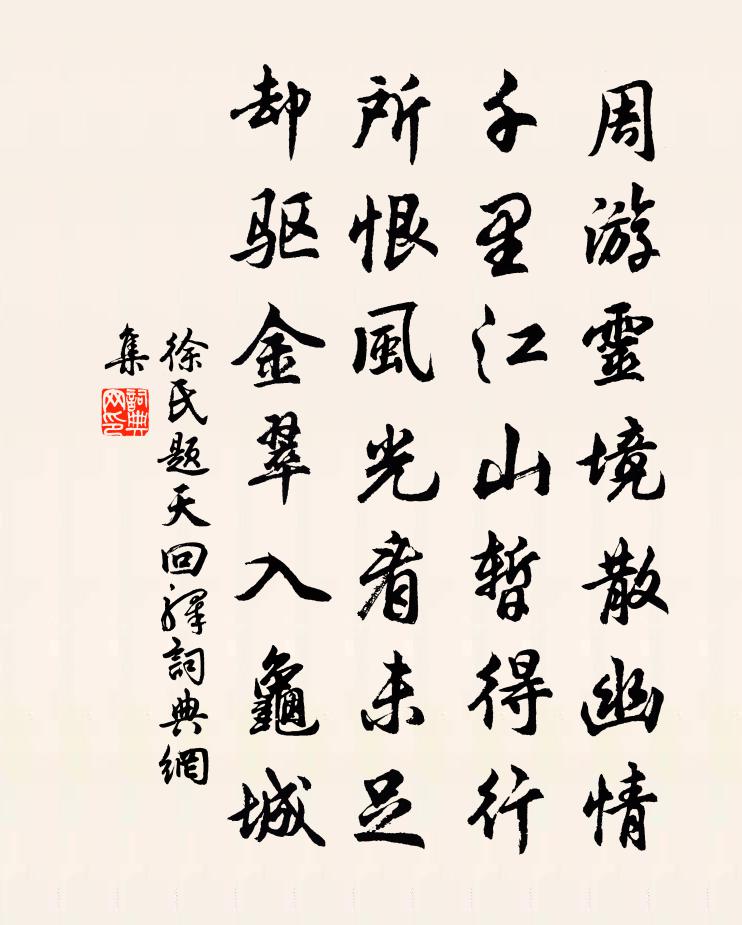 周游靈境散幽情
千里江山暫得行
所恨風光看未足
却驱金翠入龜城
徐氏题天回驛詞典網
集
詞典
网印